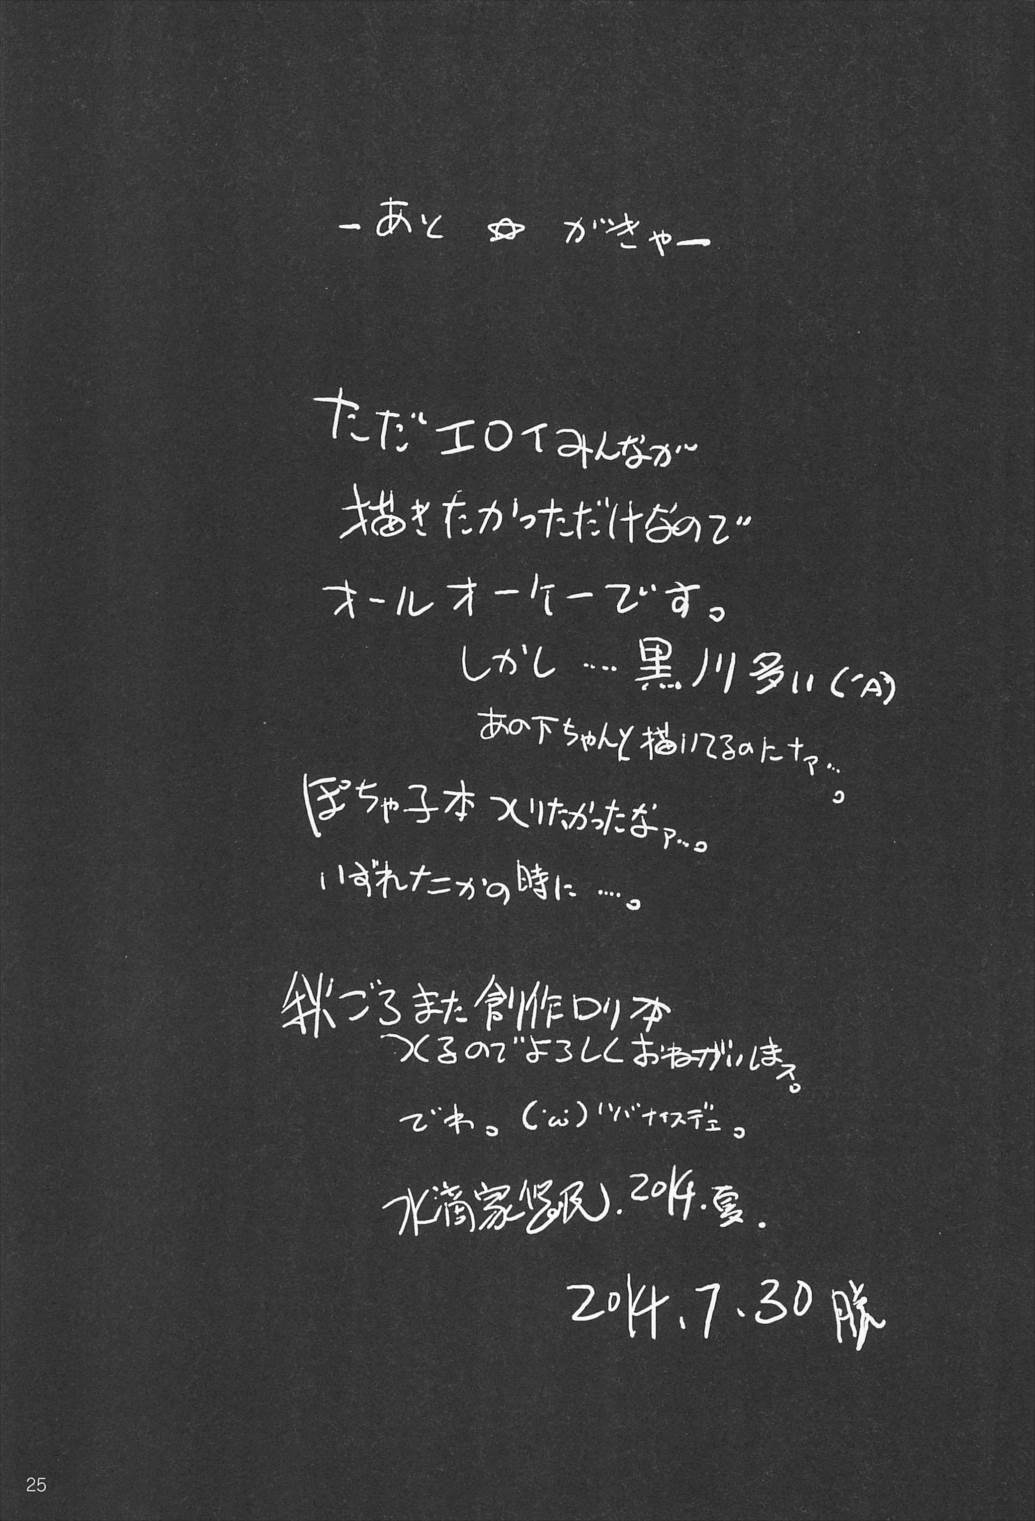 －あと☆がきゃー
ただエロイみんなが
描きたかっただけなので
オールオーケーです。
しかし‥‥黒ノリ多い(´A`)
あの下ちゃんと描いてるのにナァ…。
ぽちゃ子本つくりたかったなァ…。
いずれナニかの時に‥‥。
秋ごろまた創作ロリ本
つくるのでよろしくおねがいしまス。
でわ。(´ω`)
水滴家悠民.2014.夏.
2014.7.30
25